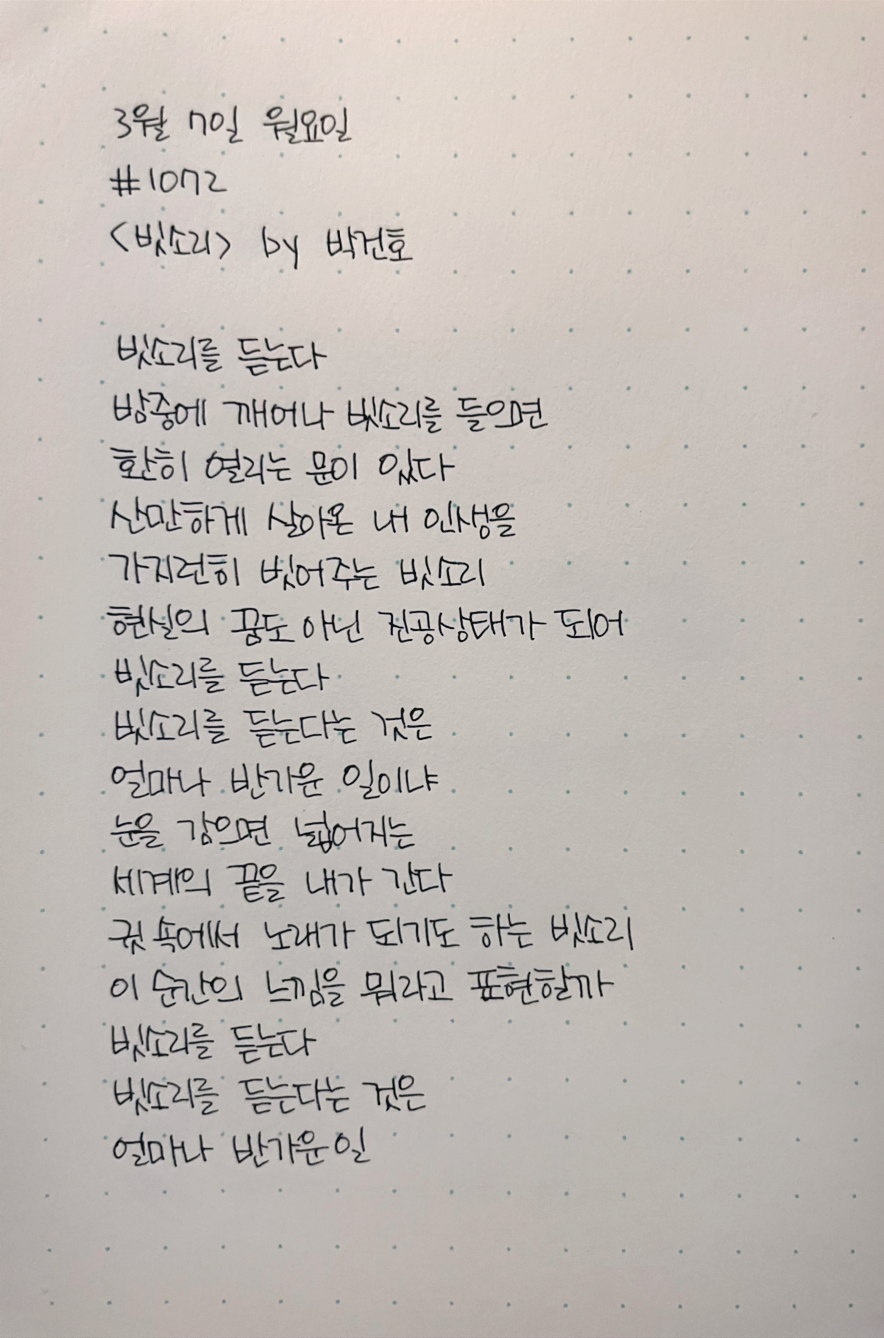 3월 7일 월요일
#1072
<빗소리> by 박건호
빗소리를 듣는다
밤중에 깨어나 빗소리를 들으면
환히 열리는 문이 있다
산만하게 살아온 내 인생을
가지런히 빗어주는 빗소리
현실의 꿈도 아닌 진공상태가 되어
빗소리를 듣는다
빗소리를 듣는다는 것은
얼마나 반가운 일이냐
눈을 감으면 넓어지는
세계의 끝을 내가 간다
귓 속에서 노래가 되기도 하는 빗소리
이 순간의 느낌을 뭐라고 표현할까
빗소리를 듣는다
빗소리를 듣는다는 것은
얼마나 반가운 일